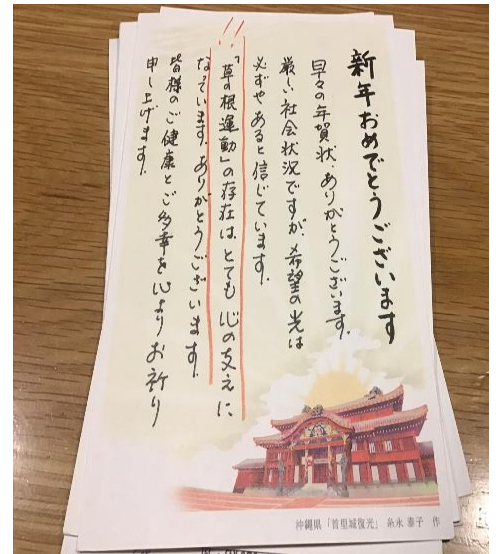 新年おめでとうございます
早々の年賀状、ありがとうございます。
厳しい社会状況ですが、希望の光は
必ずやあると信じています。
「草の根運動」の存在は、とても心の支えに
なっています。ありがとうございます。
皆様のご健康とご多幸を心よりお祈り
申し上げます。
沖縄県「首里城復光」 糸永 泰子 作